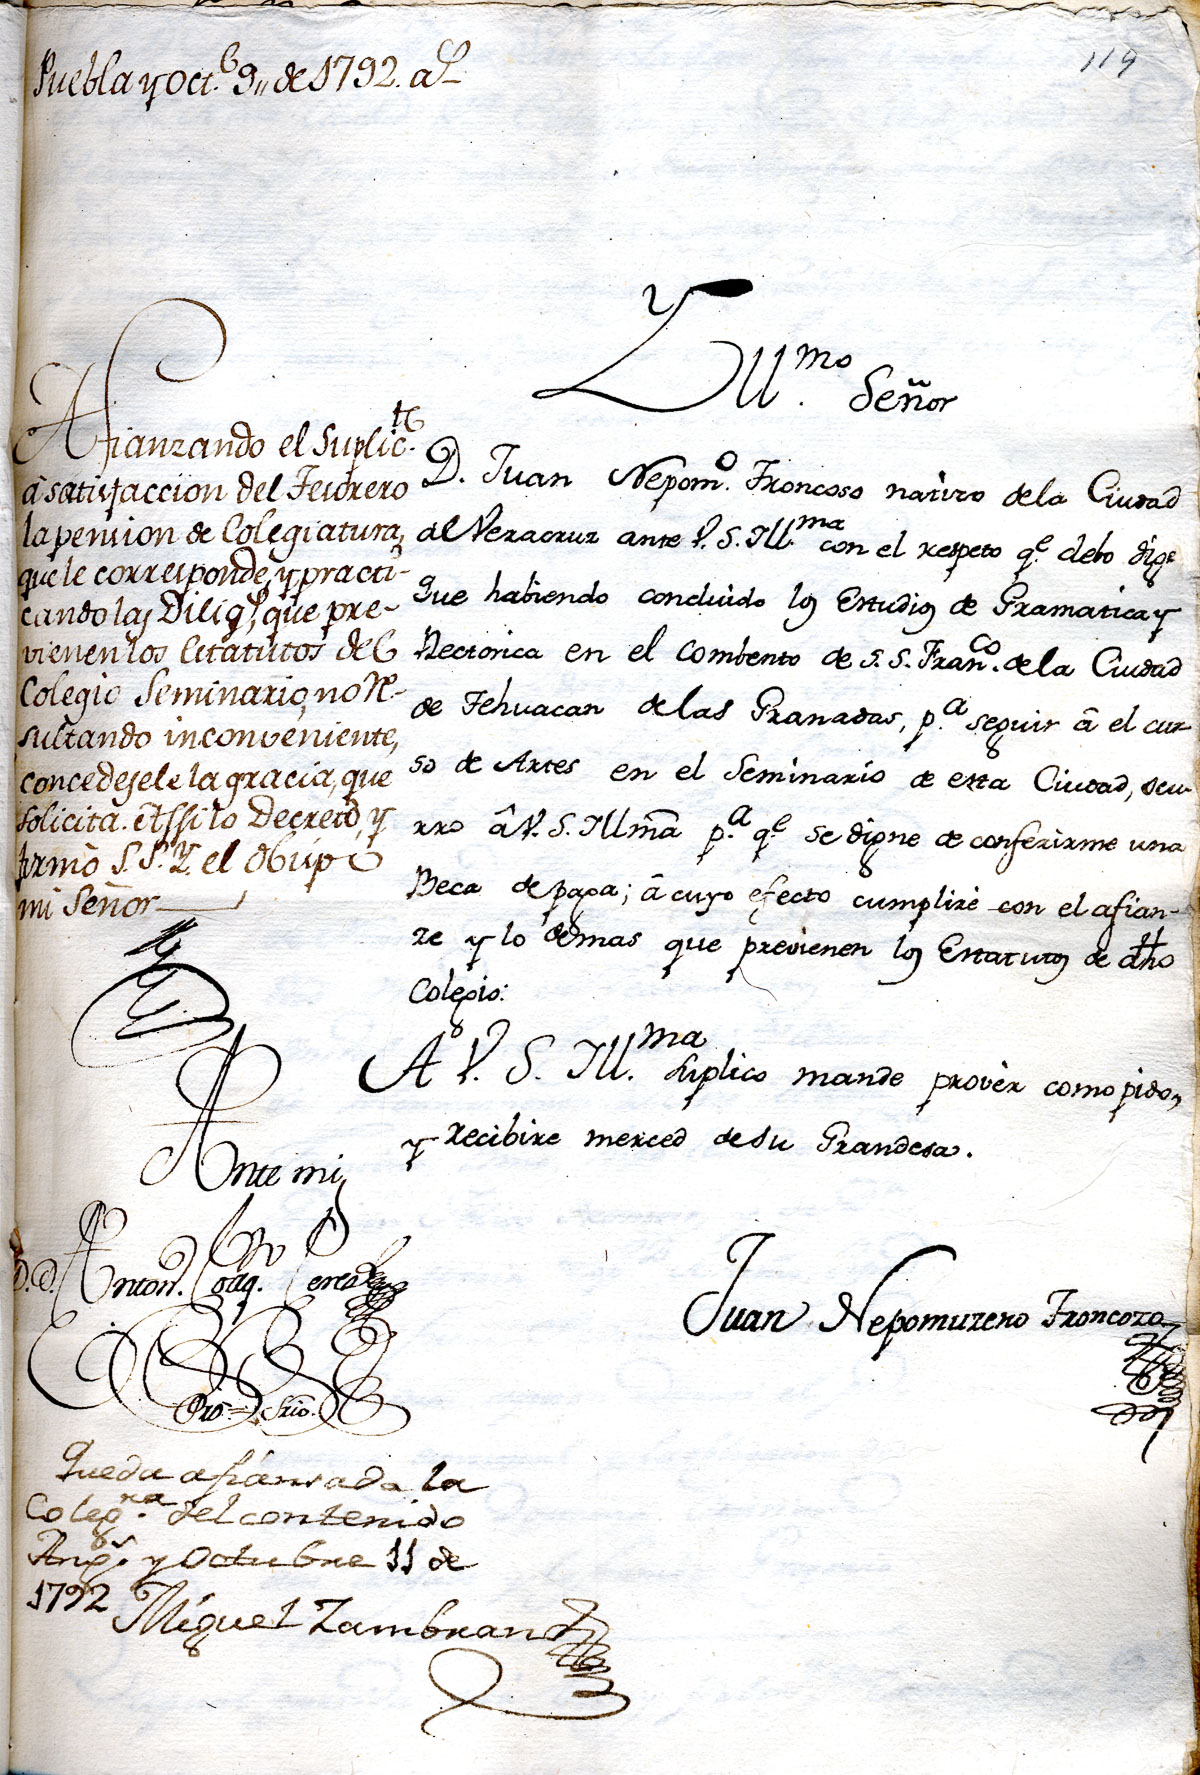 119
Puebla y Oct.e 9,, de 1792. a.s
Yll.mo
Señor
D. Juan Nepom.o Troncoso nativo de la Ciudad
de Veracruz ante V. S. Ill.ma con el respeto q.e debo digo
Que habiendo concluido los Estudios de Gramatica y
Rectorica en el Combento de S. S. Fran.co de la Ciudad
de Tehuacan de las Granadas, p.a seguir â el cur-
so de Artes en el Seminario de esta Ciudad, ocu-
rro â V. S. Illmã p.a q.e se digne de conferirme una
Beca de paga; â cuyo efecto cumplire con el afian-
ze y lo demas que previenen los Estatutos de dho
Colegio:
A V. S. Ill.ma suplico mande provêr como pido,
y recibire merced de su Grandesa.
Juan Nepomuzeno Troncozo
Afianzando el Suplic.te
â satisfaccion del Tesorero
la pension de Colegiatura,
que le corresponde, y practi-
cando las Dilig.s, que pre-
vienen los Estatutos del
Colegio Seminario, no re-
sultando inconveniente,
concedesele la gracia, que
solicita. Assi lo Decretó, y
firmò S. S. Y. el Obispo
mi Señor
Ante mi,
D. D. Anton. Joaq. Perez
Pro-Srio.
Queda afiansada la
Coleg.ra del contenido
Ang.s y Octubre 11 de
1792
Miguel Zambrano